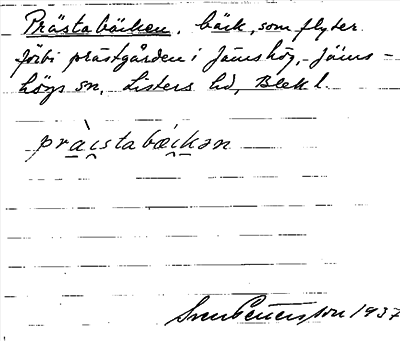 Prästabäcken, bäck, som flyter
förbi prästgården i Jämshög, Jäms-
högs sn, Listers hd, Blek l.
prài̯stabæi̯kən
Sven Petersson 1937